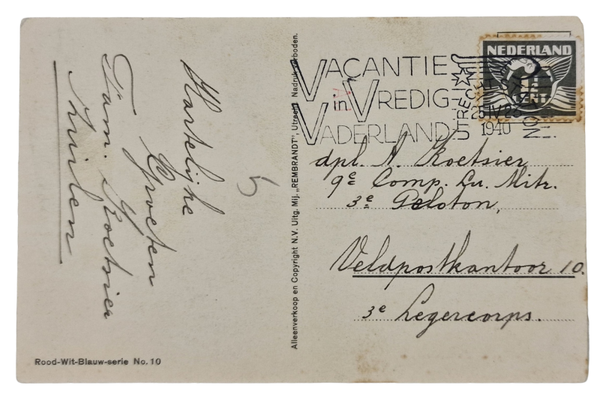 Hartelijke
Groeten
Fam. Koetsier
Zuilen
5
Rood-Wit-Blauw-serie No. 10
Alleenverkoop en Copyright N.V. Uitg. Mij. „REMBRANDT", Utrecht. Nadruk verboden.
VACANTIE
in VREDIG-
VADERLAND
UTRECHT
25 IV
1940
NEDERLAND
dpl. N. Koetsier
9e Comp. Lu. Mitr.
3e Peloton,
Veldpostkantoor 10.
3e Legercorps.